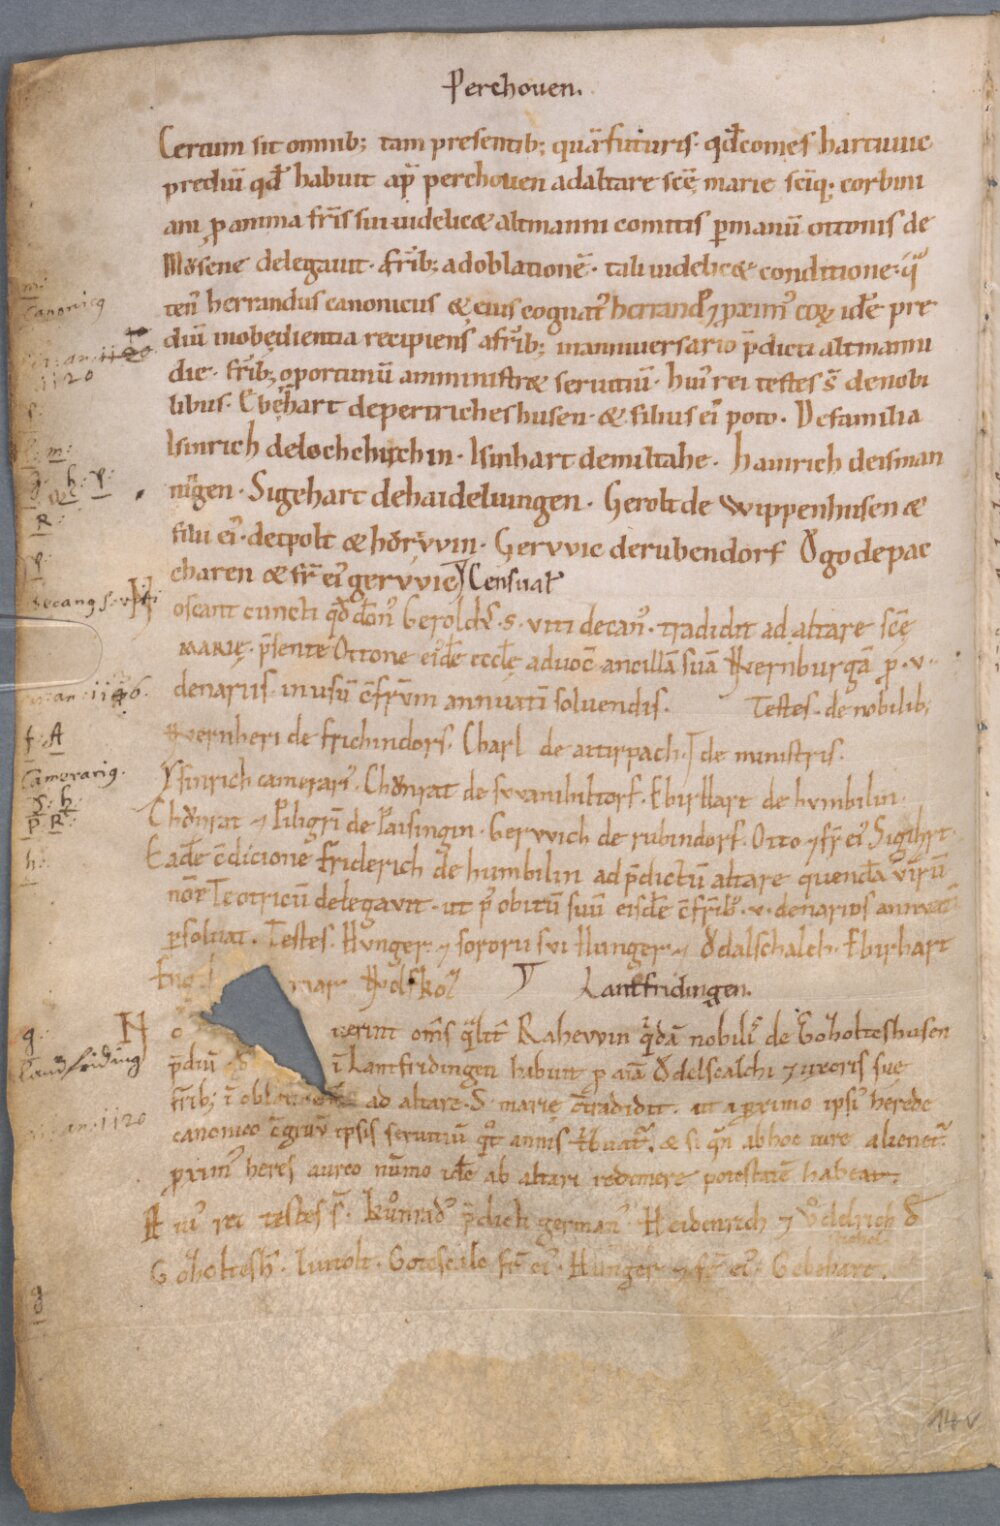 Perchouen.
Certum sit omnib; tam presentib; quā futuris. qđ comes hartuuic
prediū qđ habuit ap̄ perchouen ad altare scē marie sc̄iq; corbini
ani, ꝑ anima fr̄is sui uidelicæ altmanni comitis ꝑ manū ottonis de
Mosene delegauit. fr̄ib; ad oblationē. tali uidelicæ conditione. q̄
ten' herrandus canonicus & eius cognat' herrand' ⁊ proxim' eoꝝ idē pre
diū in obędientia recipiens a fr̄ib; in anniuersario p̄dicti altmanni
die. fr̄ib; oportunū amministræ seruitiū. hui' rei testes s̄ de nobi
libus. Ebęrhart de pertricheshusen. & filius ei' poto. De familia
Isinrich de lochchirchin. Isinhart de miltahe. hainrich de isman
nigen. Sigehart de haideluingen. Gerolt de wippenhusen æ
filii ei'. detpolt æ hortvvin. Gervvic de rubendorf Ǒgo de pac
charen æ fr̄ ei' gervvic Censual'
Noscant cuncti qđ don' Gerold'. S. viti decan'. tradidit ad altare scē
MARIĘ. p̄sente Ottone ei'dē eccłę aduoc̄ ancillā suā Wernburgā ꝑ. v.
denariis. in usū c̄fr̄vm annuatī soluendis. Testes. de nobilib;
Wernheri de frichindorf. Charl de aitirpach. de ministris.
Ysinrich camerari'. Chǒnrat de svvanihiltorf. Ebirhart de hvmbilin.
Chǒnrat ⁊ Piligrī de Paisingin. Gervvich de rubindorf. Otto ⁊ fr̄ ei' Sigihrt.
Eadē c̄dicione friderich de humbilin ad p̄dictū altare quendā virū
nōe Teotricū delegavit. ut p' obitū suū eisdē c̄fr̄ib'. v. denarios annuatī
ꝑsoluat. Testes. Hvnger. ⁊ sororii sui Hunger. ⁊ Ǒdalschalch. Ebirhart
Eng mar Wolfkol
Lantfridingen.
No uerint om̄s q̄lit' Rahewin q̄dā nobilis de Goholteshusen
p̄diū ī Lantfridingen habuit ꝑ aīa Ǒdelscalchi ⁊ uxoris sue
fr̄ib; ī oblatione ad altare. S. marię c̄tradidit. ut a proximo ipsi' herede
canonico c̄gruū ipsis seruitiū q̄t annis tribuat'. & si q̄n ab hoc iure alienet'.
proxim' heres aureo nūmo idē ab altari redimere potestatē habeat.
Hui' rei testes s̄. kůnrad' p̄dicti german'. Heidenrich ⁊ Vǒdelrich d̄
Goholtesh̄. Liutolt. Gotscalc fr̄ ei'. Hunger ⁊ fr̄ ei'. Gebehart.
Canonicg
an. 1120
1120
m:
g: h: p:
R:
decang S. viti
an. 1126.
f. A
Camerarig.
S: h:
p: R:
h:
g.
Landfriding
an. 1120
g
14v